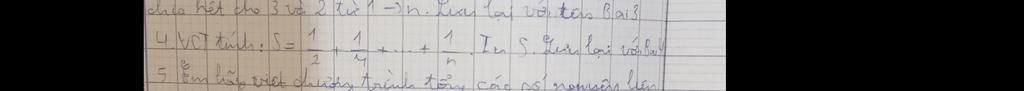 chia hết cho 3 và 2 từ 1 -> n. Lưu lại với tên Bai3
4. VCT tính: S = 1/2 + 1/4 + ... + 1/n. In S. Lưu lại với Bai4
5 Em hãy viết chương trình tổng các số nguyên liên